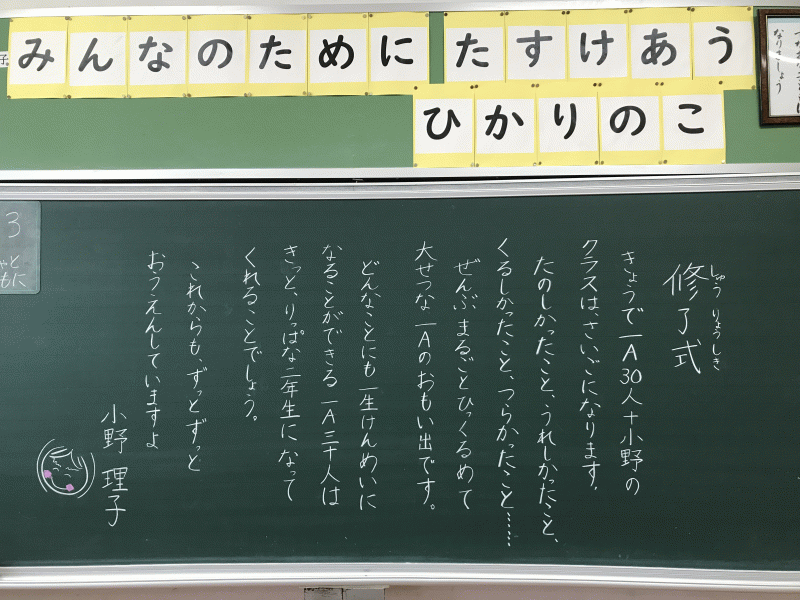 みんなのために たすけあう
ひかりのこ
修了式
しゅう りょうしき
きょうで一A30人+小野の
クラスは、さいごになります。
たのしかったこと、うれしかったこと、
くるしかったこと、つらかったこと……
ぜんぶまるごとひっくるめて
大せつな一Aのおもい出です。
どんなことにも一生けんめいに
なることができる一A三十人は
きっと、りっぱな二年生になって
くれることでしょう。
これからも、ずっとずっと
おうえんしていますよ
小野 理子
3
ともに